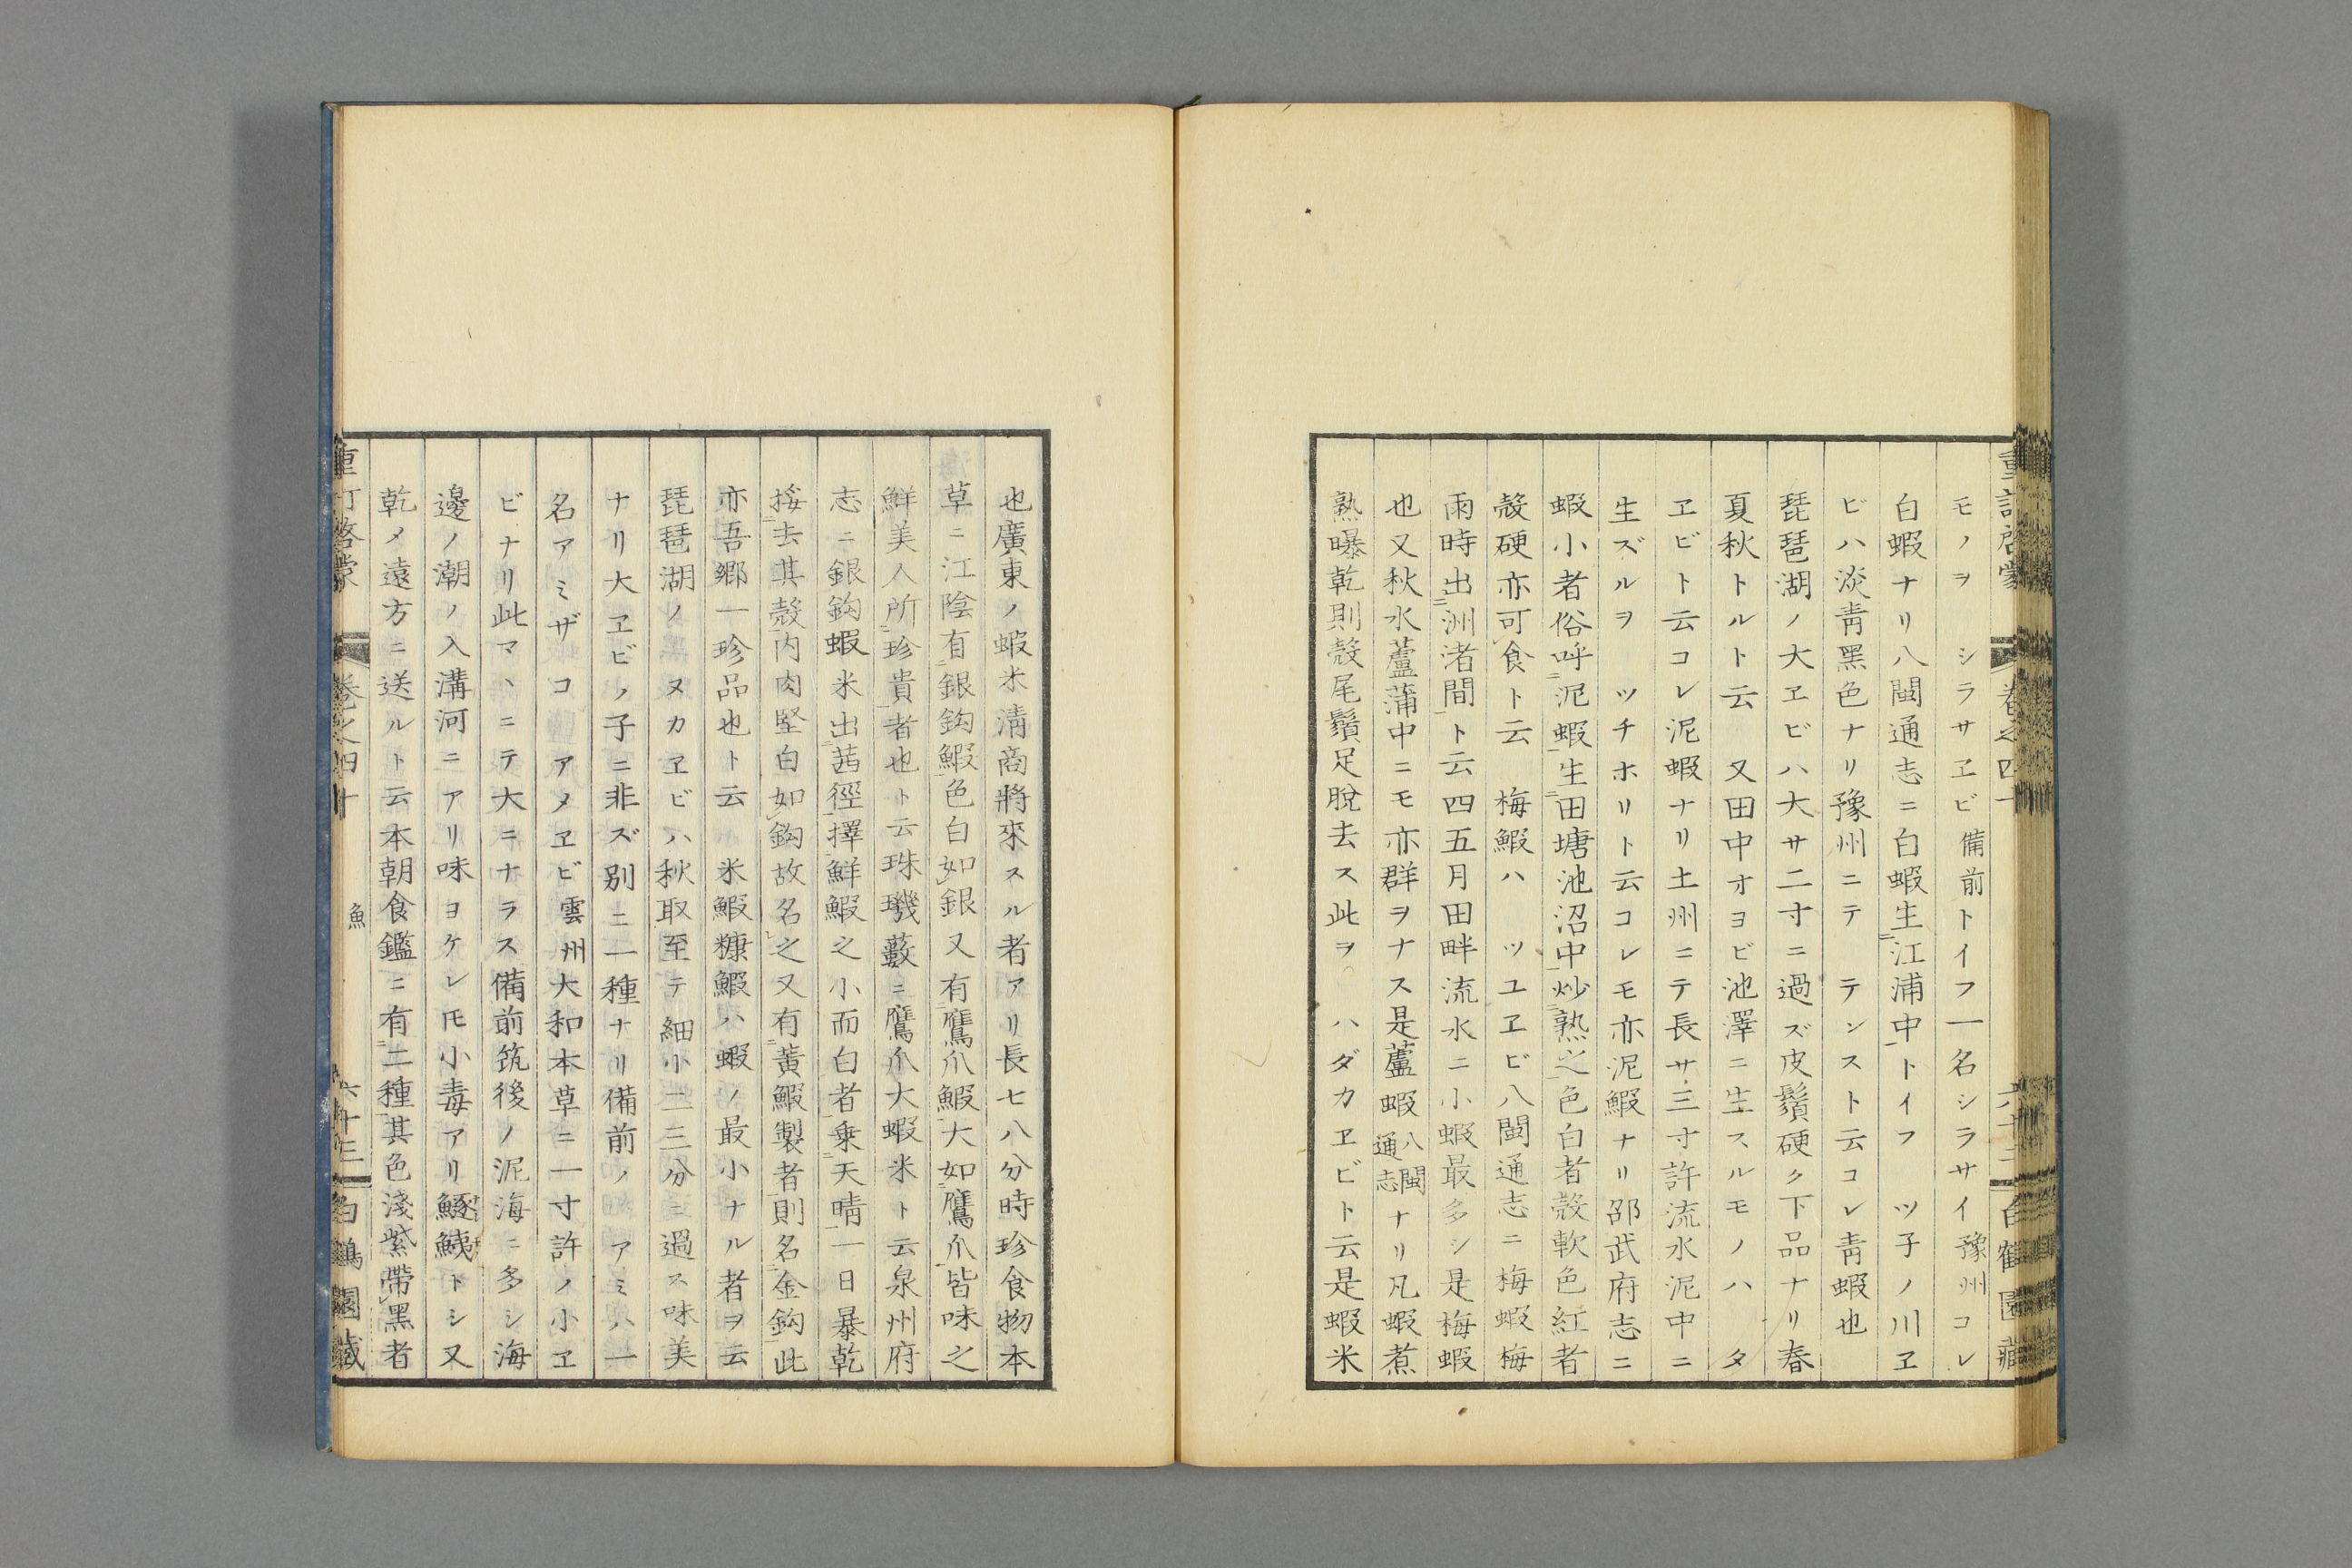 モノヲ シラサヱビ備前トイフ一名シラサイ豫州コレ
白蝦ナリ八閩通志ニ白蝦生江浦中トイフ ツ子ノ川ヱ
ビハ淡靑黑色ナリ豫州ニテ テンストト云コレ靑蝦也
琵琶湖ノ大ヱビハ大サ二寸ニ過ズ皮鬚硬ク下品ナリ春
夏秋トルト云 又田中オヨビ池澤ニ生スルモノハ タ
ヱビト云コレ泥蝦ナリ土州ニテ長サ三寸許流水泥中ニ
生ズルヲ ツチホリト云コレモ亦泥鰕ナリ邵武府志ニ
蝦小者俗呼泥蝦生田塘池沼中炒熟之色白者殼軟色紅者
殼硬亦可食ト云 梅鰕ハ ツユヱビ八閩通志ニ梅蝦梅
雨時出洲渚間ト云四五月田畔流水ニ小蝦最多シ是梅蝦
也又秋水蘆蒲中ニモ亦群ヲナス是蘆蝦八閩通志ナリ凡蝦煮
熟曝乾則殼尾鬚足脫去ス此ヲ ハダカヱビト云是蝦米
也廣東ノ蝦米淸商將來スル者アリ長七八分時珍食物本
草ニ江陰有銀鈎鰕色白如銀又有鷹爪鰕大如鷹爪皆味之
鮮美人所珍貴者也ト云珠璣藪ニ鷹爪大蝦米ト云泉州府
志ニ銀鈎蝦米出茜徑擇鮮鰕之小而白者乗天晴一日暴乾
挼去其殼内肉堅白如鈎故名之又有蕢鰕製者則名金鈎此
亦吾鄉一珍品也ト云 米鰕糠鰕ハ蝦ノ最小ナル者ヲ云
琵琶湖ノ ヌカヱビハ秋取至テ細小二三分ニ過ス味美
ナリ大ヱビノ子ニ非ズ别ニ一種ナリ備前ノ アミハ一
名アミザコ アメヱビ雲州大和本草ニ一寸許ノ小ヱ
ビナリ此マヽニテ大ニナラス備前筑後ノ泥海ニ多シ海
邊ノ潮ノ入溝河ニアリ味ヨケレ𪜈小毒アリ鱁鮧トシ又
乾メ遠方ニ送ルト云本朝食鑑ニ有二種其色淺紫帶黑者
重訂啓蒙 卷之四十 魚 六十三 白鶴園藏